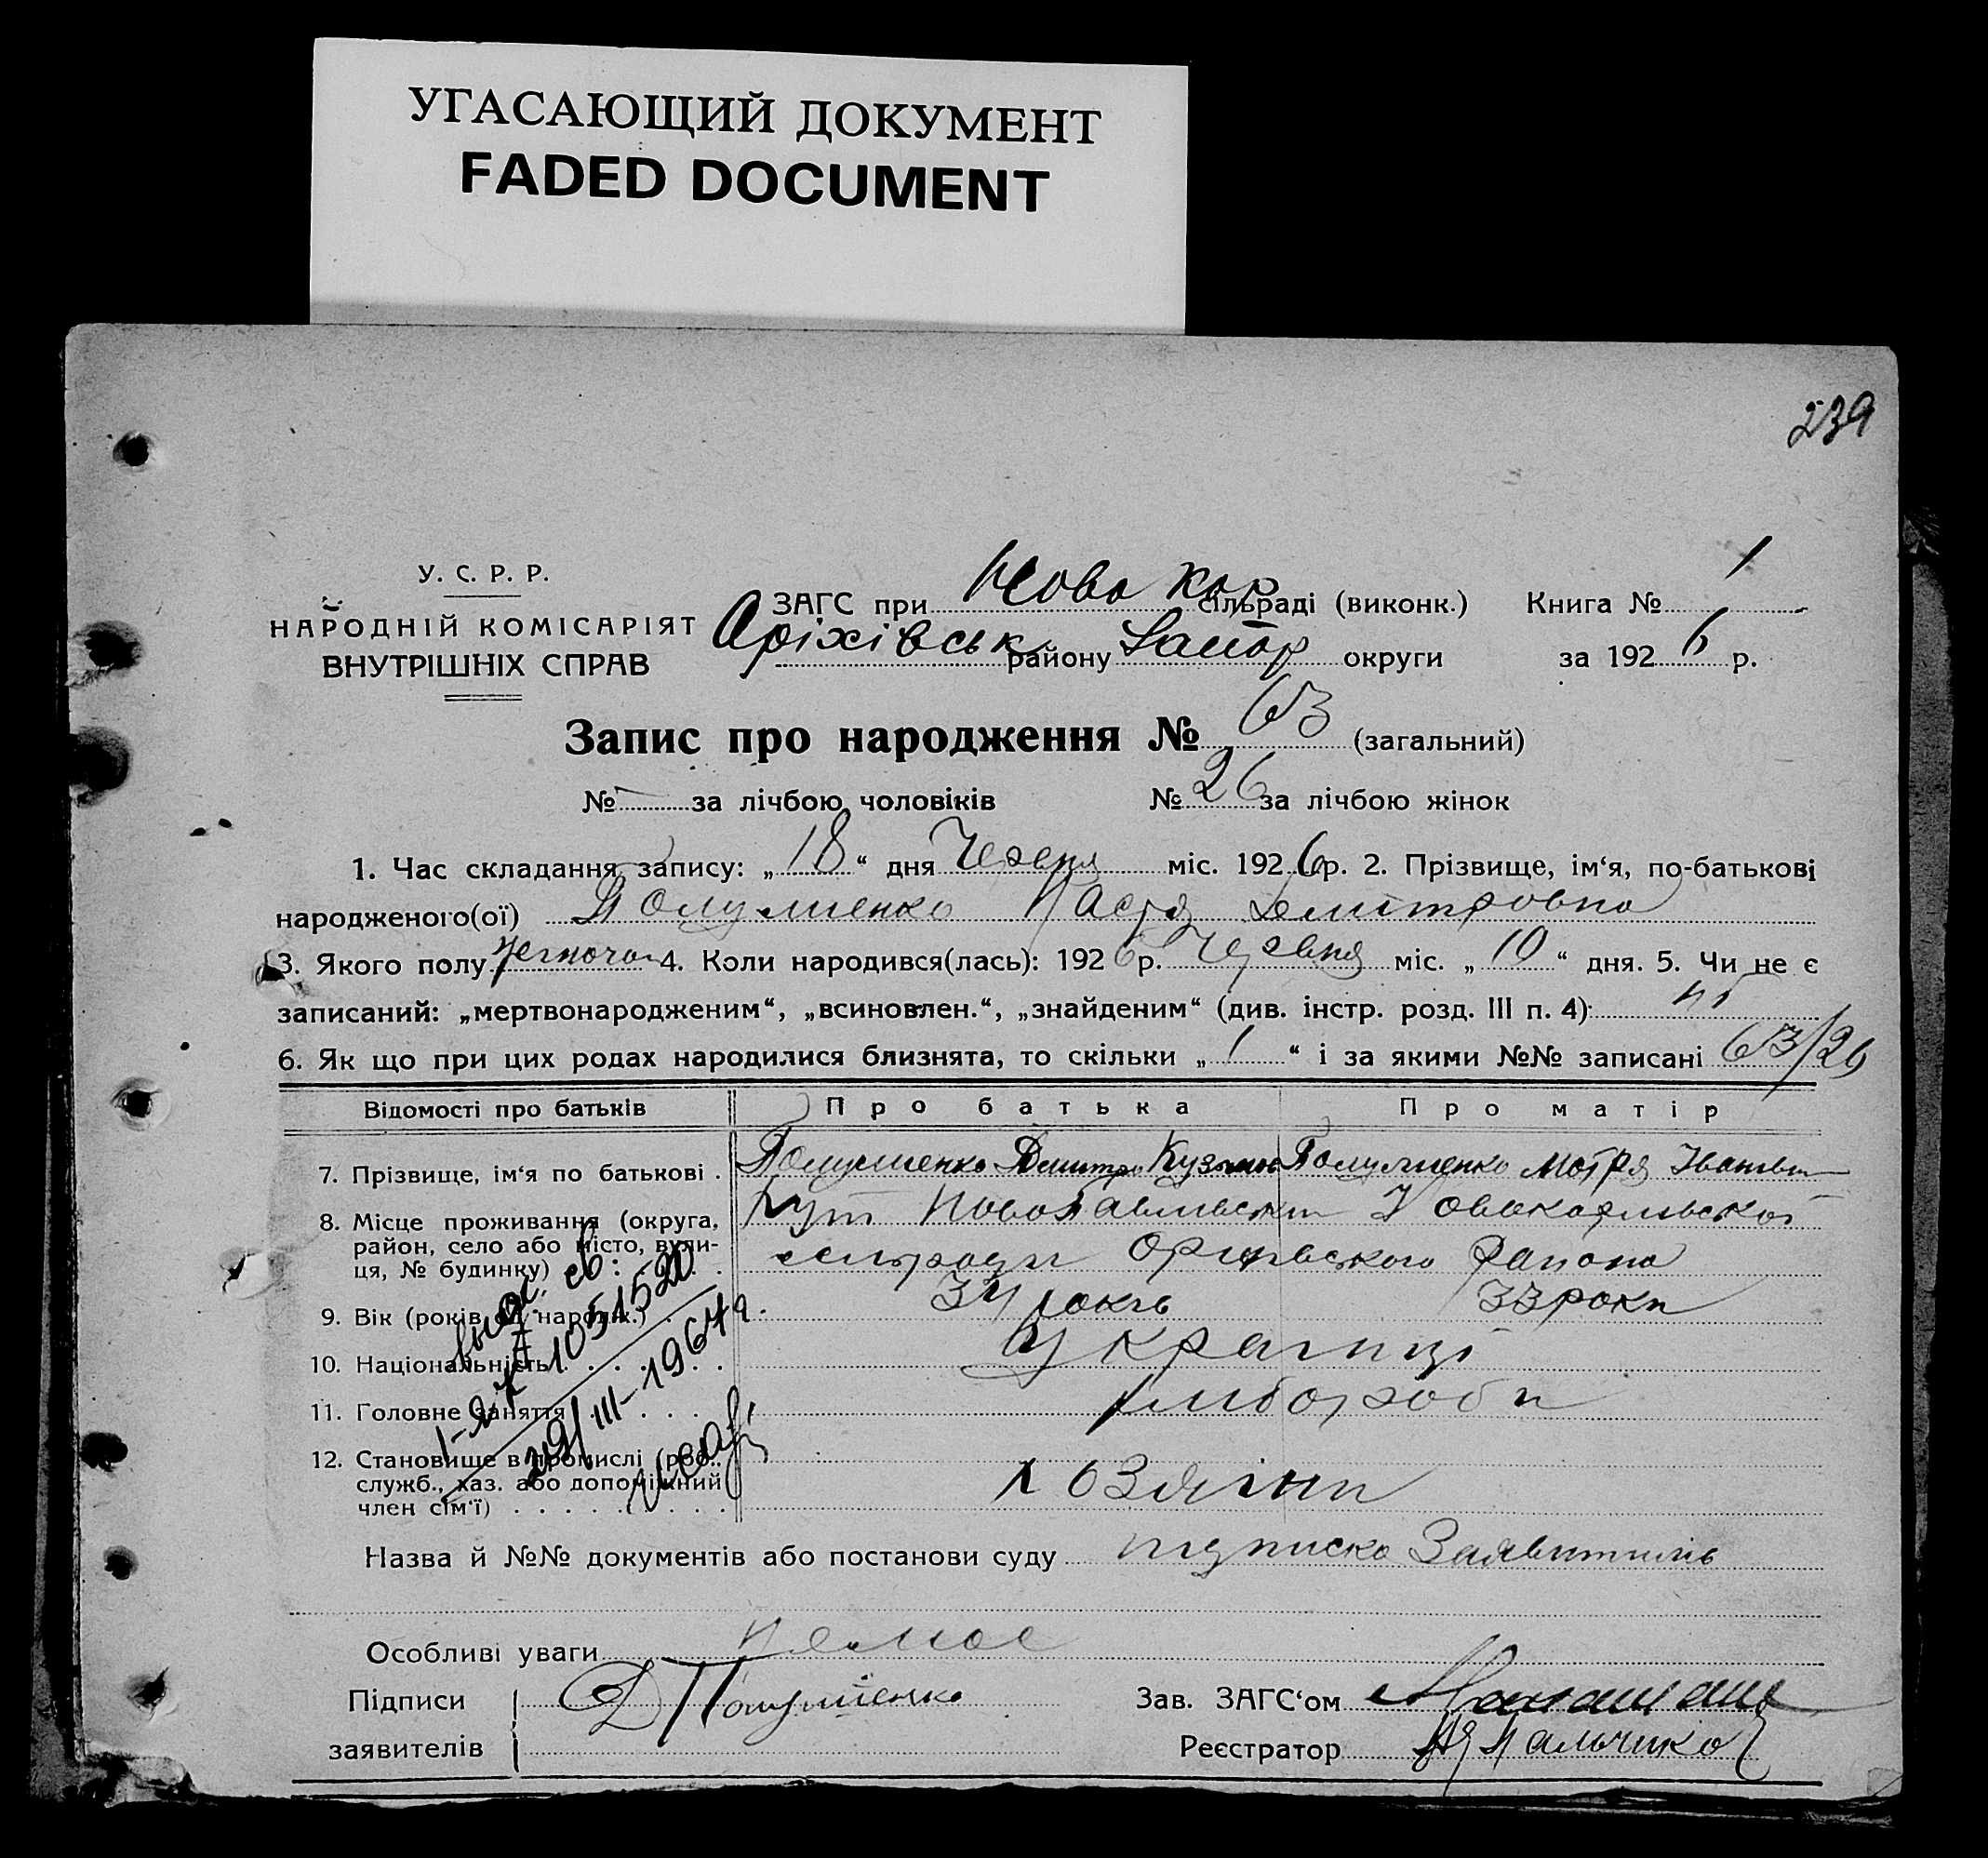 УГАСАЮЩИЙ ДОКУМЕНТ
FADED DOCUMENT
239
У. С. Р. Р.
НАРОДНІЙ КОМІСАРІЯТ
ВНУТРІШНІХ СПРАВ
ЗАГС при Ново Кар сільраді (виконк.) Книга № 1
Аріхівськ району Запор округи за 1926 р.
Запис про народження № 63 (загальний)
№ — за лічбою чоловіків № 26 за лічбою жінок
1. Час складання запису: „18“ дня Червня міс. 1926 р. 2. Прізвище, ім‘я, по-батькові
народженого(ої) Настя Дмитровна
3. Якого полу жіночоі 4. Коли народився(лась): 1926 р. Червня міс. „10“ дня. 5. Чи не є
записаний: „мертвонародженим“, „всиновлен.“, „знайденим“ (див. інстр. розд. III п. 4): ні
6. Як що при цих родах народилися близнята, то скільки „1“ і за якими №№ записані 63/26
Відомості про батьків Про батька Про матір
7. Прізвище, ім‘я по батькові . Дмитро Кузьмов Мотря Івановна
8. Місце проживання (округа,
район, село або місто, вули-
ця, № будинку) . .
Хут Новопавлівський Новокарлівськоі
сільради Оріхівського Района
9. Вік (років від народж.) . 34 рокив 33 роки
10. Національність . . . . . . Украінці
11. Головне заняття . . . . . Хлібороби
12. Становище в промислі (роб.,
служб., хаз. або допоміжний
член сім‘ї) . . . . . . . . .
Хозяіни
выдс. св:
І-ЯЖ 1051520
29/III-1964 г.
Назва й №№ документів або постанови суду підписка Заявителів
Особливі уваги немає
Підписи
заявителів
Зав. ЗАГС‘ом
Реєстратор